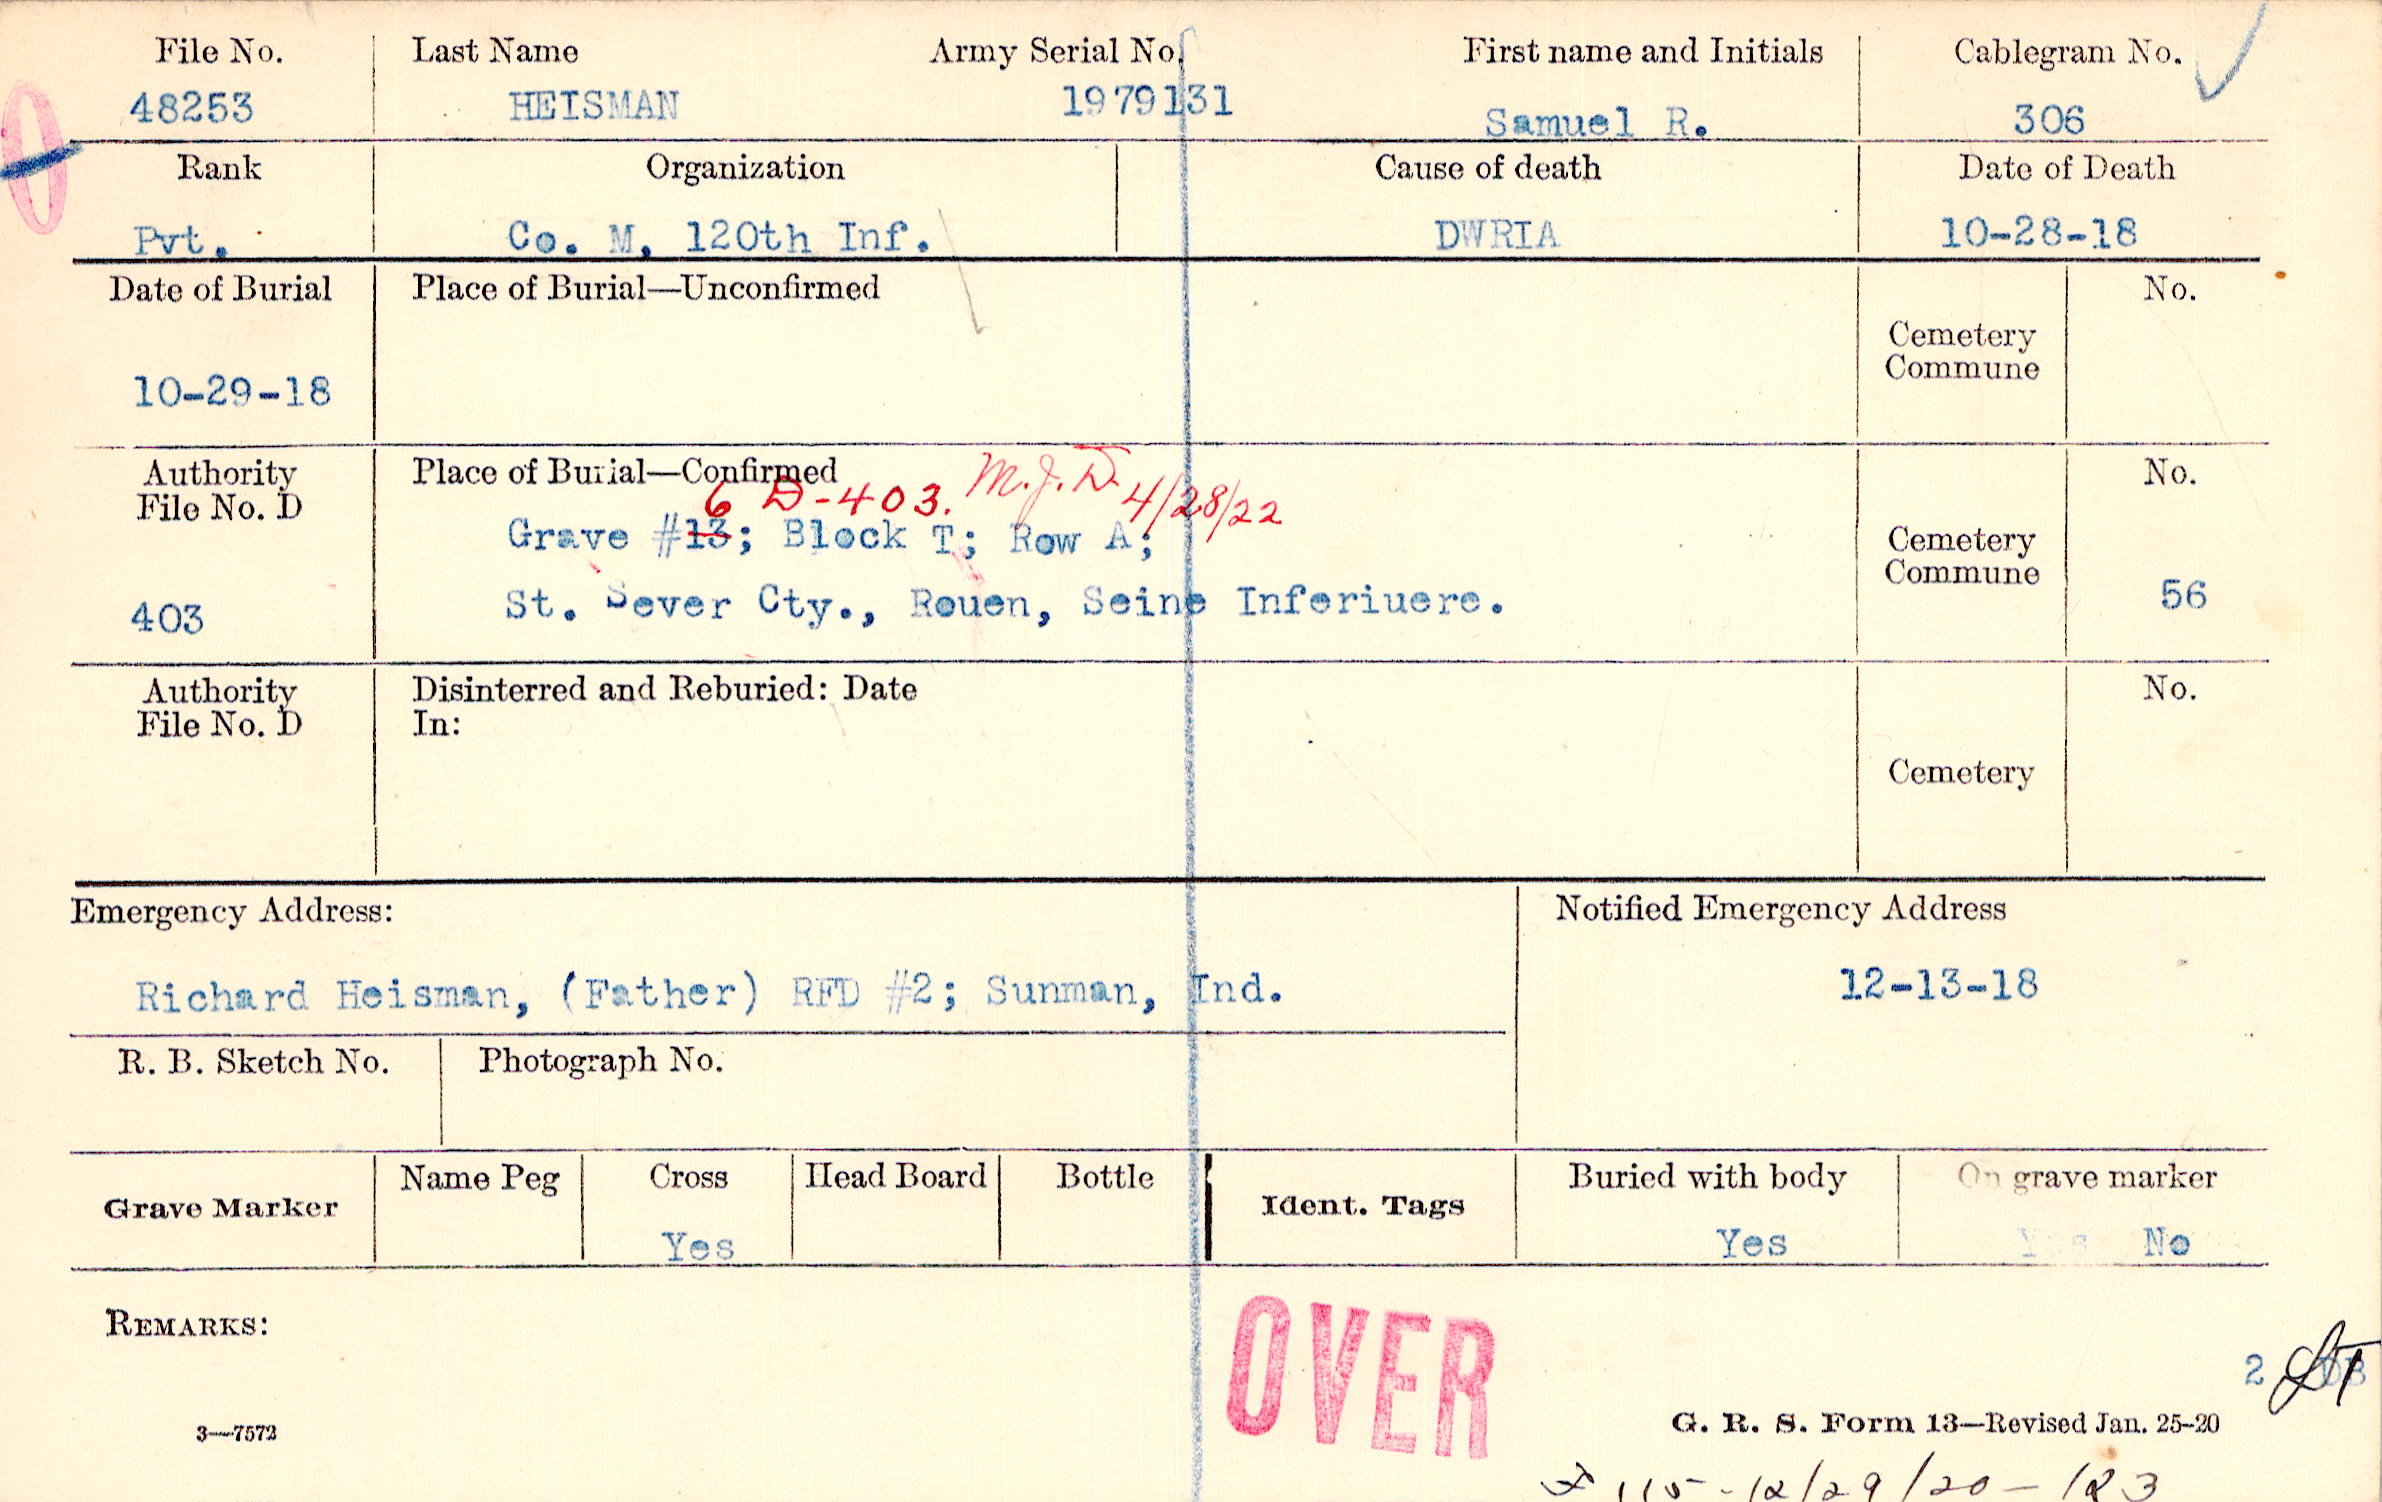 File No. Last Name Army Serial No. First name and Initials Cablegram No.
48253 HEISMAN 1979131 Samuel R. 306
Rank Organization Cause of death Date of Death
Pvt. Co. M, 120th Inf. DWRIA 10-28-18
Date of Burial Place of Burial—Unconfirmed No.
Cemetery
Commune
10-29-18
Authority Place of Burial—Confirmed No.
File No. D
6 D-403. M.J.D. 4/28/22
Grave #13; Block T; Row A;
Cemetery
Commune
403 St. Sever Cty., Rouen, Seine Inferiuere. 56
Authority Disinterred and Reburied: Date No.
File No. D In:
Cemetery
Emergency Address: Notified Emergency Address
Richard Heisman, (Father) RFD #2; Sunman, Ind. 12-13-18
R. B. Sketch No. Photograph No.
Grave Marker Name Peg Cross Head Board Bottle Ident. Tags Buried with body On grave marker
Yes Yes Yes No
REMARKS:
OVER
2
3—7572 G. R. S. Form 13—Revised Jan. 25-20
115-12/29/20-183